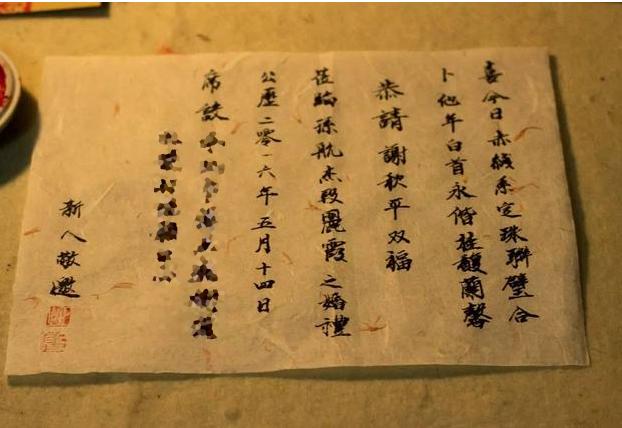 喜今日赤线系定珠聯璧合
卜他年白首永偕桂馥蘭馨
恭請 謝秋平双福
莅臨孫航杰段麗霞之婚禮
公歷二零一六年五月十四日
席設
新人敬邀